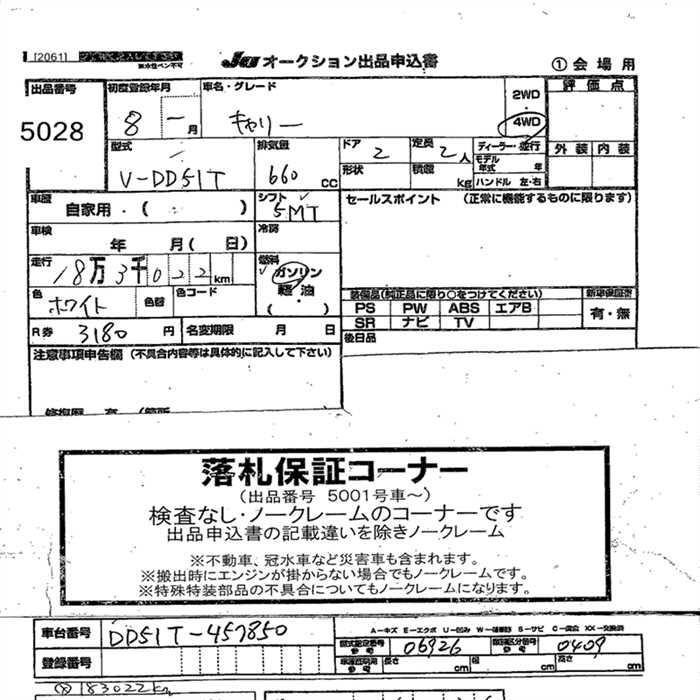 [2061]
※水性ペン不可
JU オークション出品申込書
① 会場用
出品番号
5028
初度登録年月
8 - 月
車名・グレード
キャリー
2WD
4WD
評価点
外装 内装
型式
V-DD51T
排気量
660 cc
ドア
2
定員
2人
形状
積載
kg
ディーラー・並行
モデル年式 年
ハンドル 左・右
車歴
自家用・( )
シフト
5MT
セールスポイント (正常に機能するものに限ります)
車検
年 月( 日)
冷房
走行
18万3千022km
燃料
ガソリン
軽・油
( )
色
ホワイト
色替
色コード
装備品(純正品に限り○をつけてください)
PS PW ABS エアB
SR ナビ TV
新車保証書
有・無
R券
3180 円
名変期限 月 日
後日品
注意事項申告欄 (不具合内容等は具体的に記入して下さい)
落札保証コーナー
(出品番号 5001号車~)
検査なし・ノークレームのコーナーです
出品申込書の記載違いを除きノークレーム
※不動車、冠水車など災害車も含まれます。
※搬出時にエンジンが掛からない場合でもノークレームです。
※特殊特装部品の不具合についてもノークレームになります。
車台番号
DD51T-457850
A-キズ E-エクボ U-凹み W-補修跡 S-サビ C-腐食 XX-交換済
型式指定番号
参考
06926
類別区分番号
参考
0409
登録番号
長さ cm
幅 cm
高さ cm
183022km